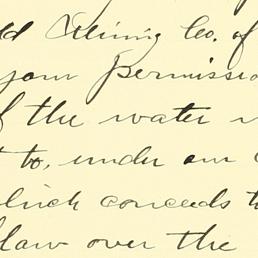 Mining Co. of
your permissio
of the water
to, under our
which concedes t
law over the